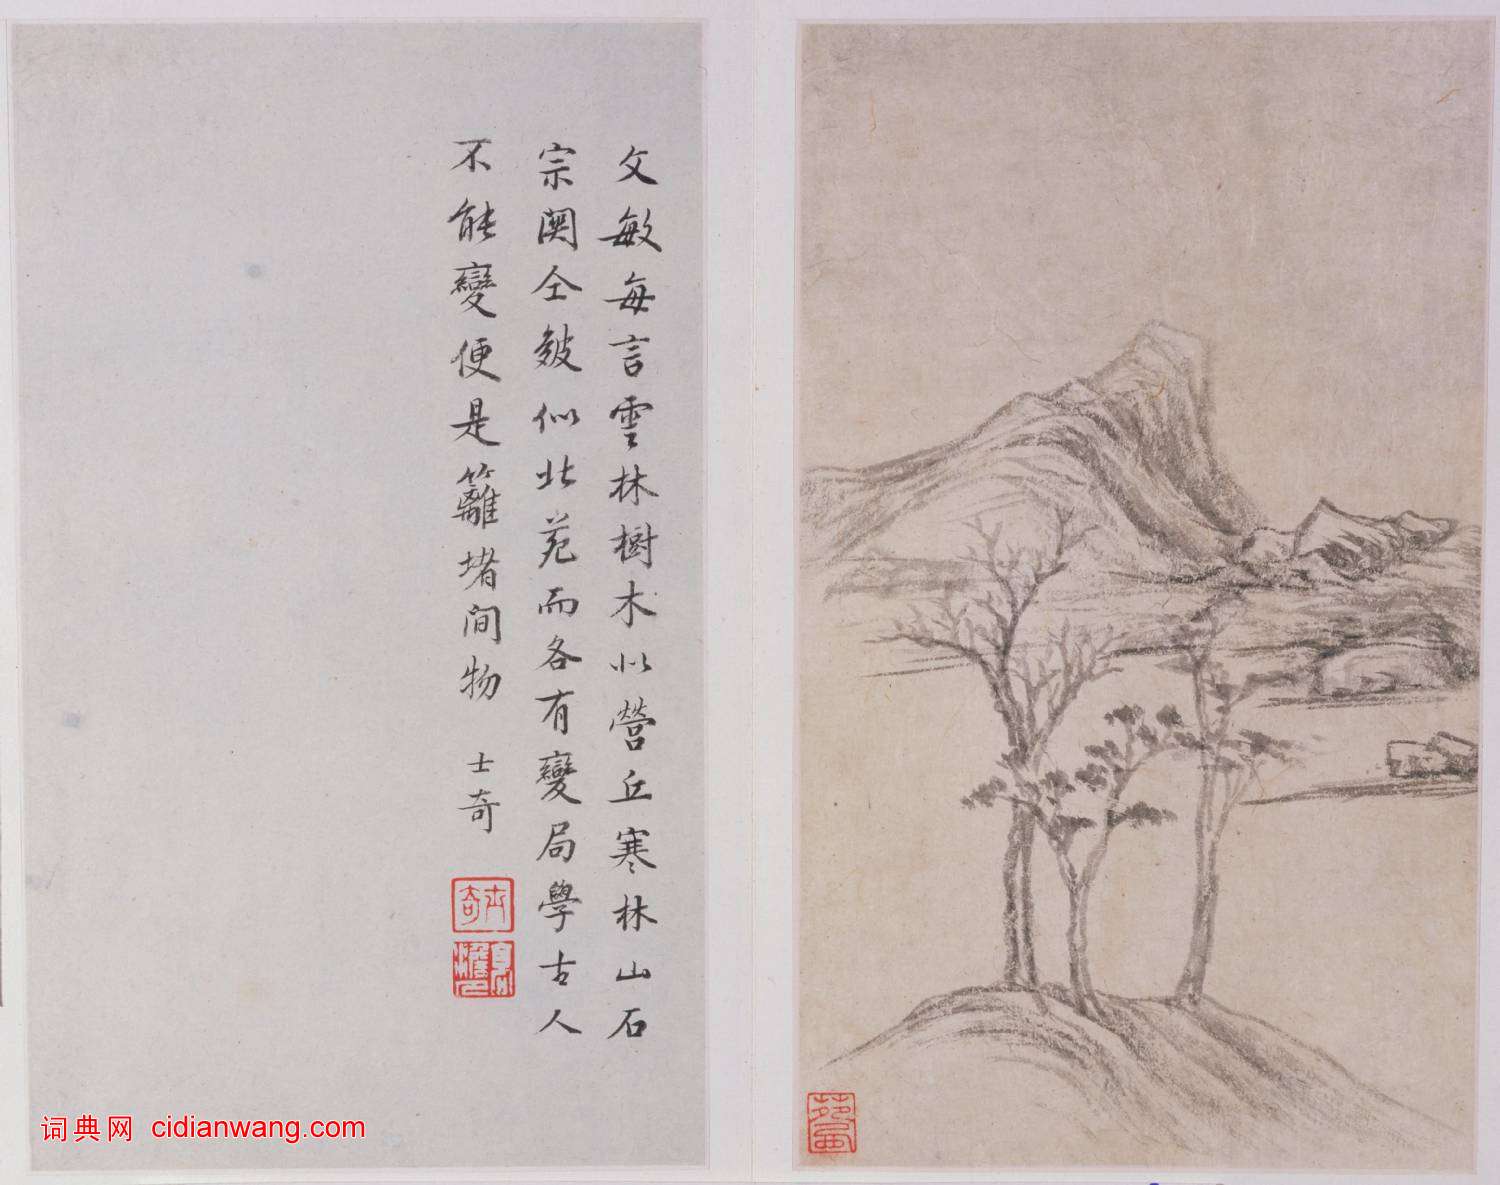 文敏每言雲林樹木似營丘寒林山石
宗關仝皴似北苑而各有變局學古人
不能變便是籬堵間物
士奇
士奇
词典网 cidianwang.com